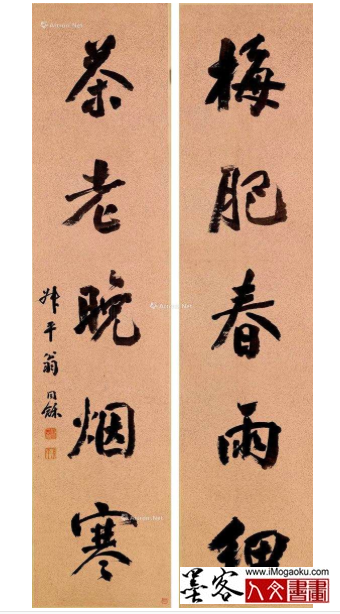 梅肥春雨細
茶老晚烟寒
叔平翁同龢
墨客
www.iMogaoku.com
人文書畫